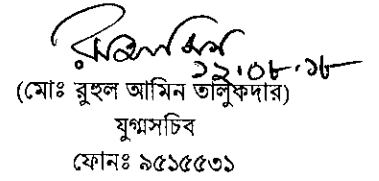 ১২.০৮.১৮
(মোঃ রুহুল আমিন তালুকদার)
যুগ্মসচিব
ফোনঃ ৯৫১৫৫৩১